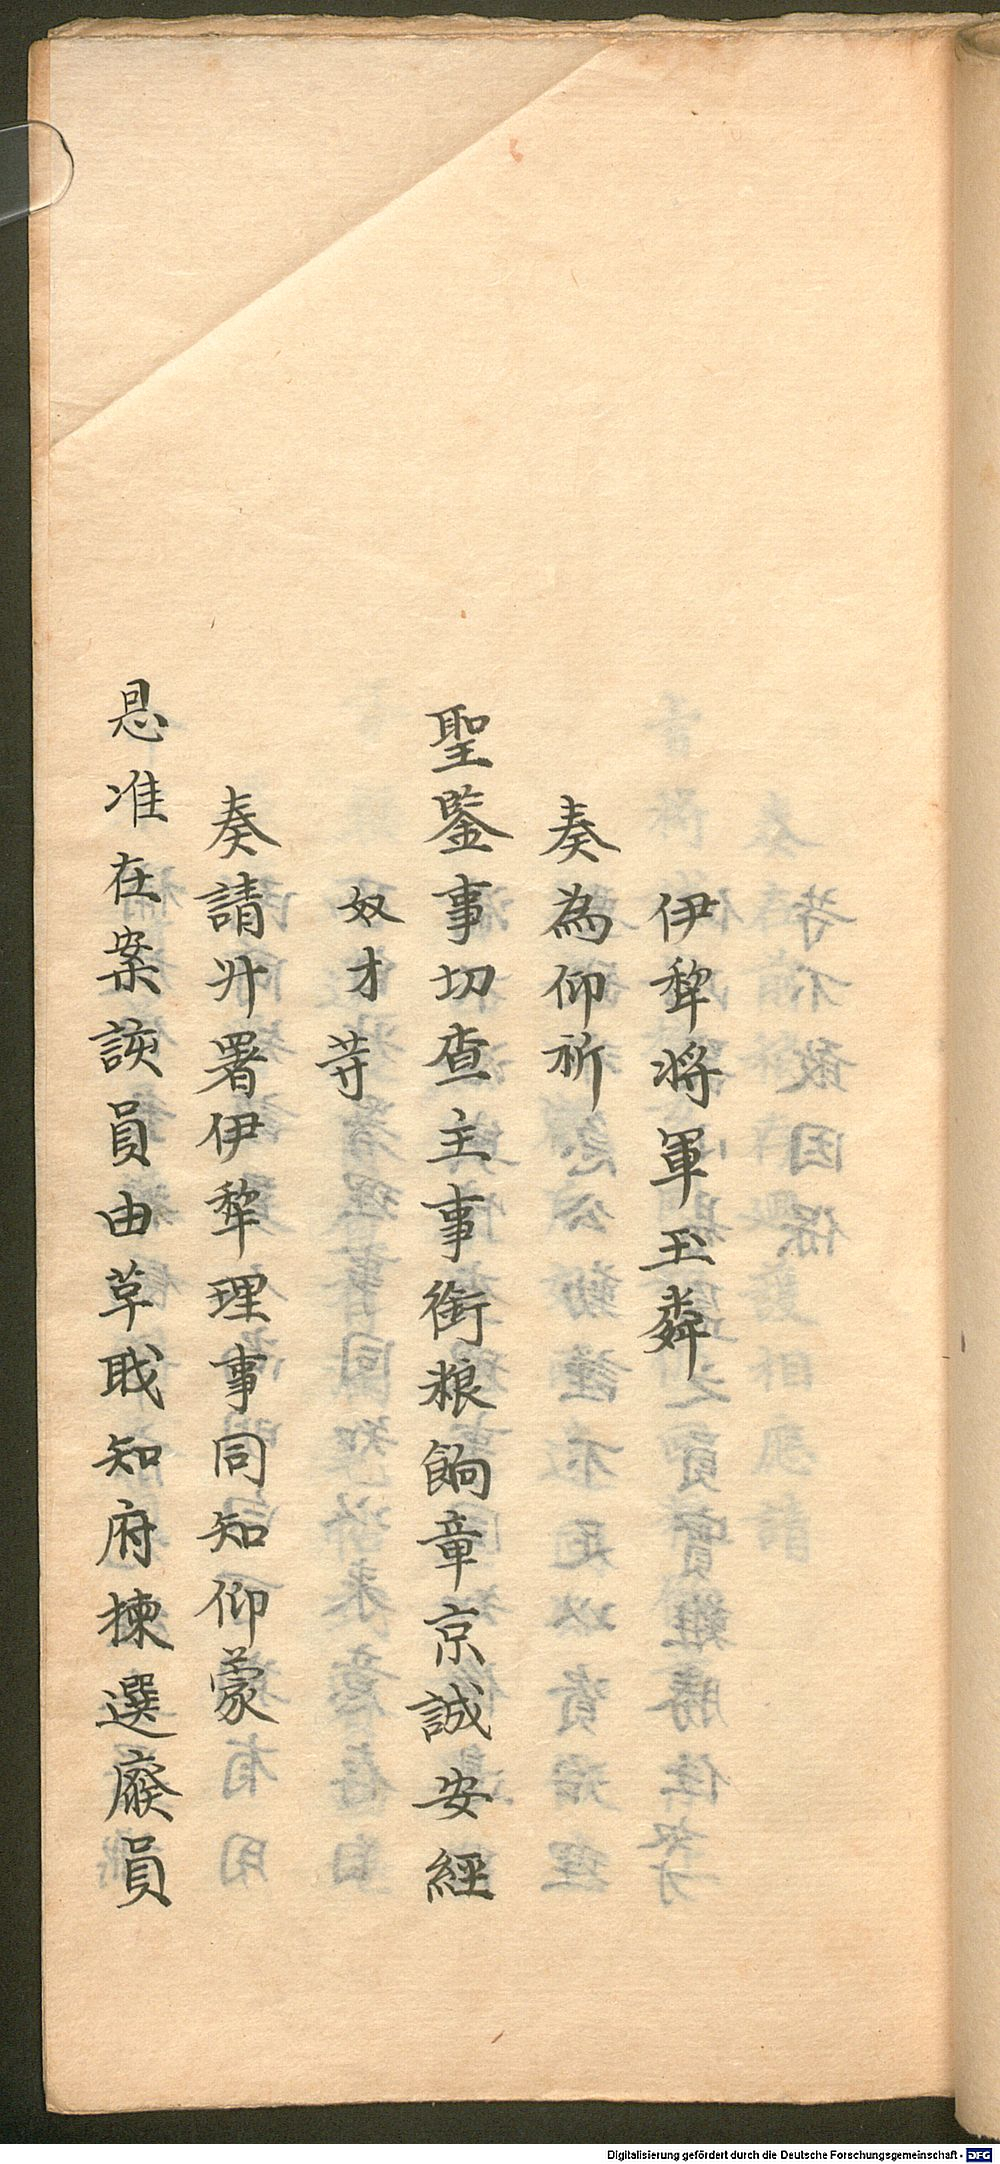 伊犂將軍玉粦
奏為仰祈
聖鑒事切查主事銜粮餉章京誠安經
奴才䓁
奏請升署伊犂理事同知仰蒙
恩准在案該員由草職知府揀選廢員
Digitalisierung gefördert durch die Deutsche Forschungsgemeinschaft - DFG